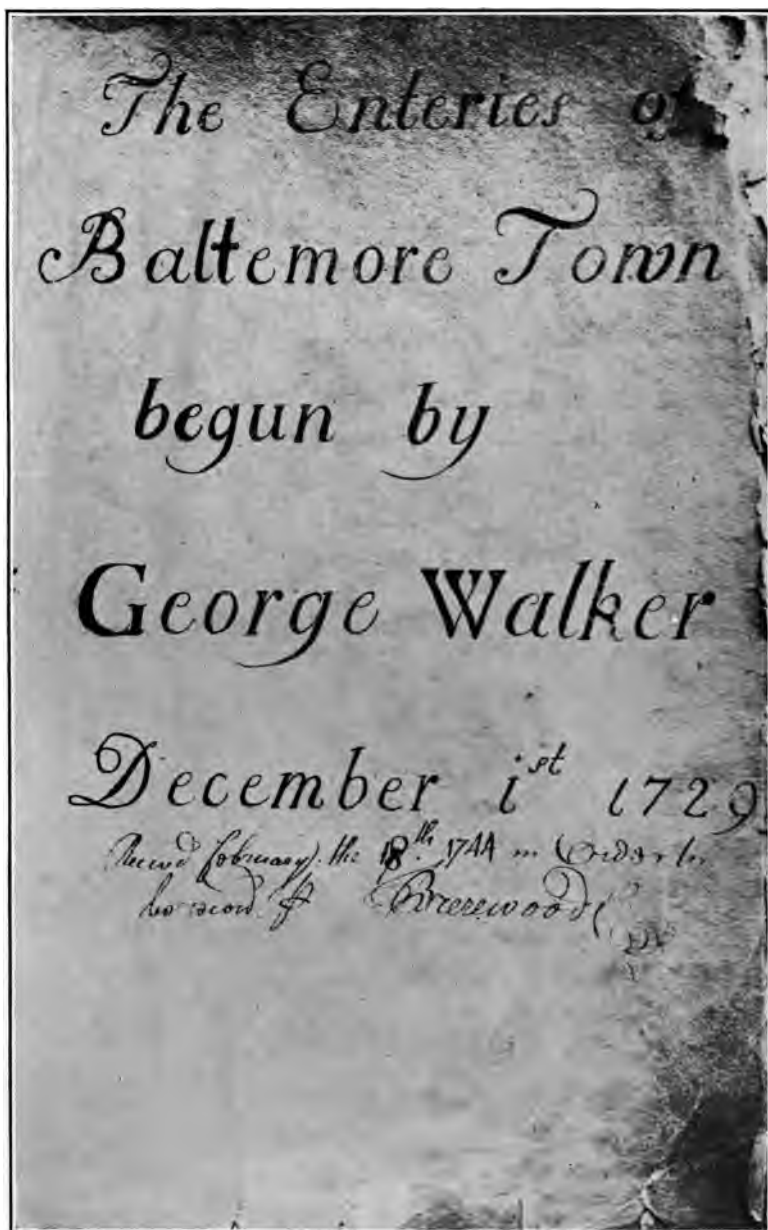 The Enteries of
Baltemore Town
begun by
George Walker
December 1st 1729
Recivd February the 18th 1744 in Order to
be record. P Brerewood